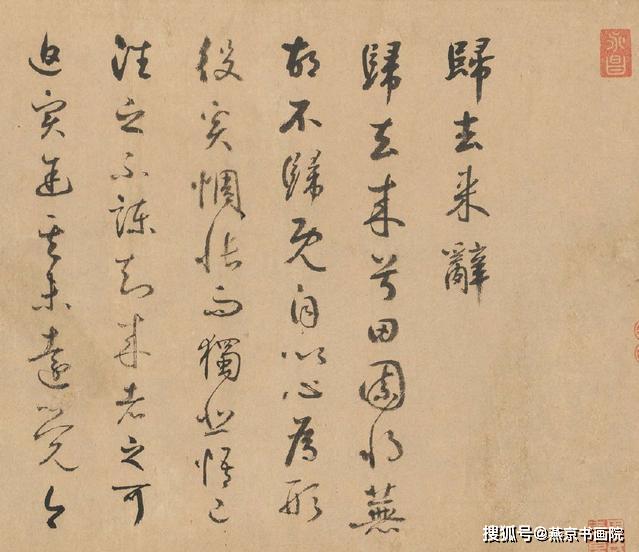 永昌
歸去来辭
歸去来兮田園将蕪
胡不歸既自以心為形
役奚惆悵而獨悲悟已
往之不諫知来者之可
追寔迷其未遠覺今
搜狐号@燕京书画院